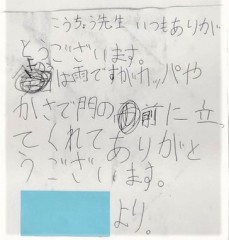 こうちょう先生 いつもありが
とうございます。
は雨ですがカッパや
かさで門の前に立っ
てくれてありがと
うございます。
より。